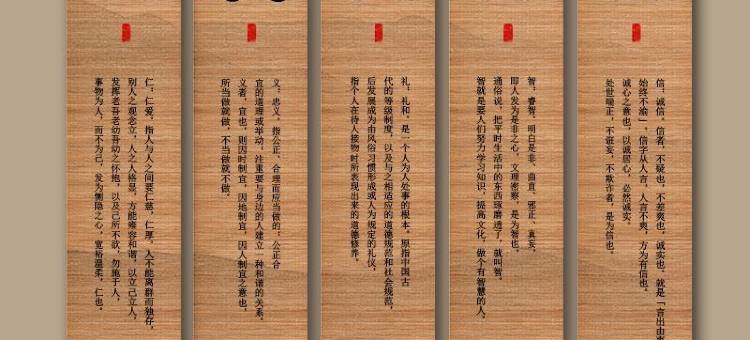 仁：仁爱，指人与人之间要仁慈，仁厚，人不能离群而独存，
别人之观念立，人之人格显，方能雍容和谐，以立己立人，
发挥老吾老幼吾幼之怀抱，以及己所不欲，勿施于人，
事物为人，而不为己，发为恻隐之心，宽裕温柔，仁也。
义：忠义，指公正、合理而应当做的；公正合
宜的道理或举动，注重要与身边的人建立一种和谐的关系。
义者，宜也，则因时制宜，因地制宜，因人制宜之意也，
所当做就做，不当做就不做。
礼：礼和，是一个人为人处事的根本。原指中国古
代的等级制度，以及与之相适应的道德规范和社会规范，
后发展成为由风俗习惯形成或人为规定的礼仪，
指个人在待人接物时所表现出来的道德修养。
智：睿智，明白是非、曲直、邪正、真妄，
即人发为是非之心，文理密察，是为智也。
通俗说，把平时生活中的东西琢磨透了，就叫智。
智就是要人们努力学习知识，提高文化，做个有智慧的人。
信：诚信，信者，不疑也，不差爽也，诚实也，就是「言出由
始终不渝」，信字从人言，人言不爽，方为有信也。
诚心之意也，以诚居心，必然诚实。
处世端正，不诳妄，不欺诈者，是为信也。